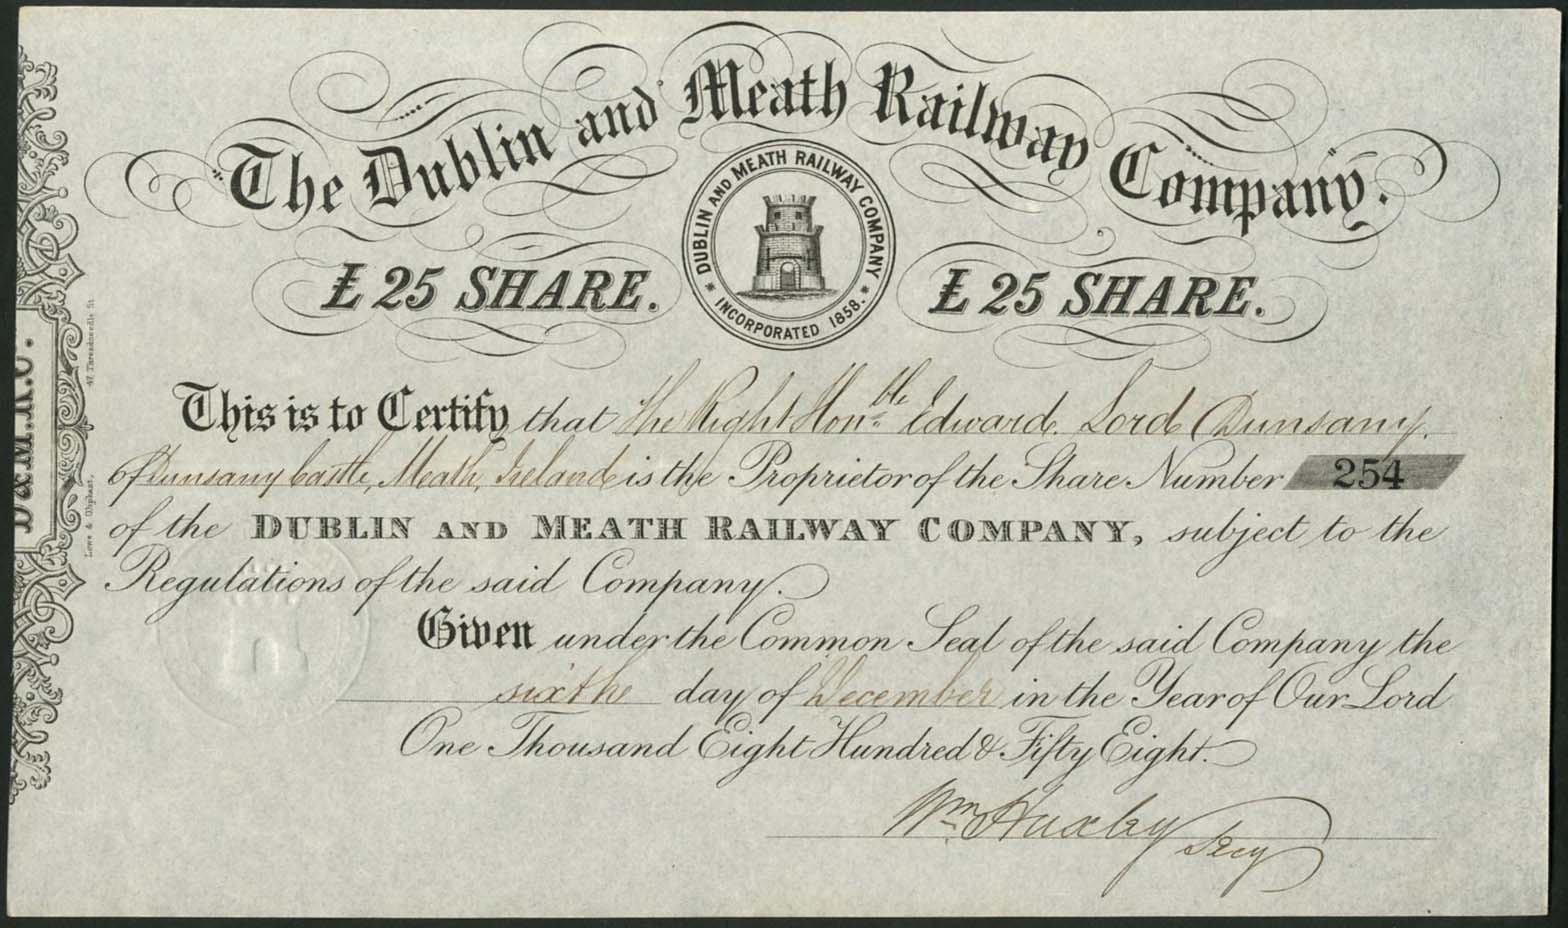 The Dublin and Meath Railway Company.
DUBLIN AND MEATH RAILWAY COMPANY
* INCORPORATED 1858. *
£25 SHARE.
£25 SHARE.
This is to Certify that the Right Hon.ble Edward. Lord Dunsany.
of Dunsany Castle, Meath, Ireland is the Proprietor of the Share Number 254
of the DUBLIN AND MEATH RAILWAY COMPANY, subject to the
Regulations of the said Company.
Given under the Common Seal of the said Company the
sixth day of December in the Year of Our Lord
One Thousand Eight Hundred & Fifty Eight.
Wm. Huxley Secy
D & M.R.C.
Lowe & Oliphant, 47 Threadneedle St